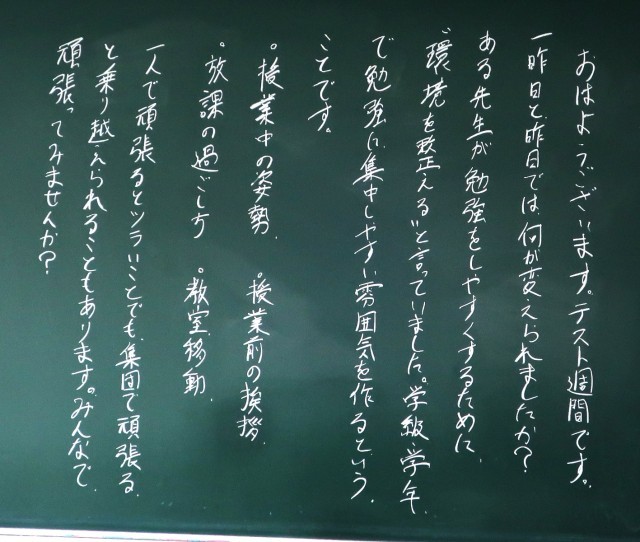 おはようございます。テスト週間です。
一昨日と、昨日では、何が変えられましたか？
ある先生が勉強をしやすくするために、
“環境を整える”と言っていました。学級・学年、
で勉強に集中しやすい雰囲気を作るという、
ことです。
。授業中の姿勢、　。授業前の挨拶、
。放課の過ごし方　。教室移動、
一人で頑張るとツライことでも、集団で頑張る、
と乗り越えられることもあります。みんなで、
頑張ってみませんか？